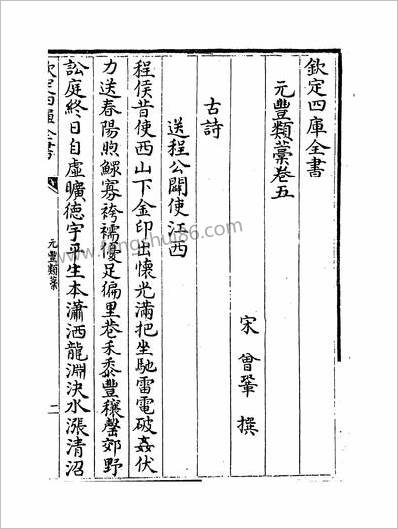 欽定四庫全書
元豐類藁卷五
宋 曾鞏 撰
古詩
送程公闢使江西
程侯昔使西山下金印出懷光滿把坐馳雷電破姦伏
力送春陽煦鰥寡袴襦優足徧里巷禾黍豐穰罄郊野
訟庭終日自虛曠德宇平生本瀟洒龍淵決水漲清沼
欽定四庫全書
元豐類藁
www.tengshu186.com